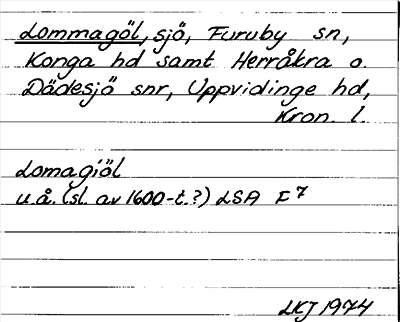 Lommagöl, sjö, Furuby sn,
Konga hd samt Herråkra o.
Dädesjö snr, Uppvidinge hd,
Kron. l.
Lomagiöl
u.å. (sl. av 1600-t.?) LSA F 7
LKJ 1974